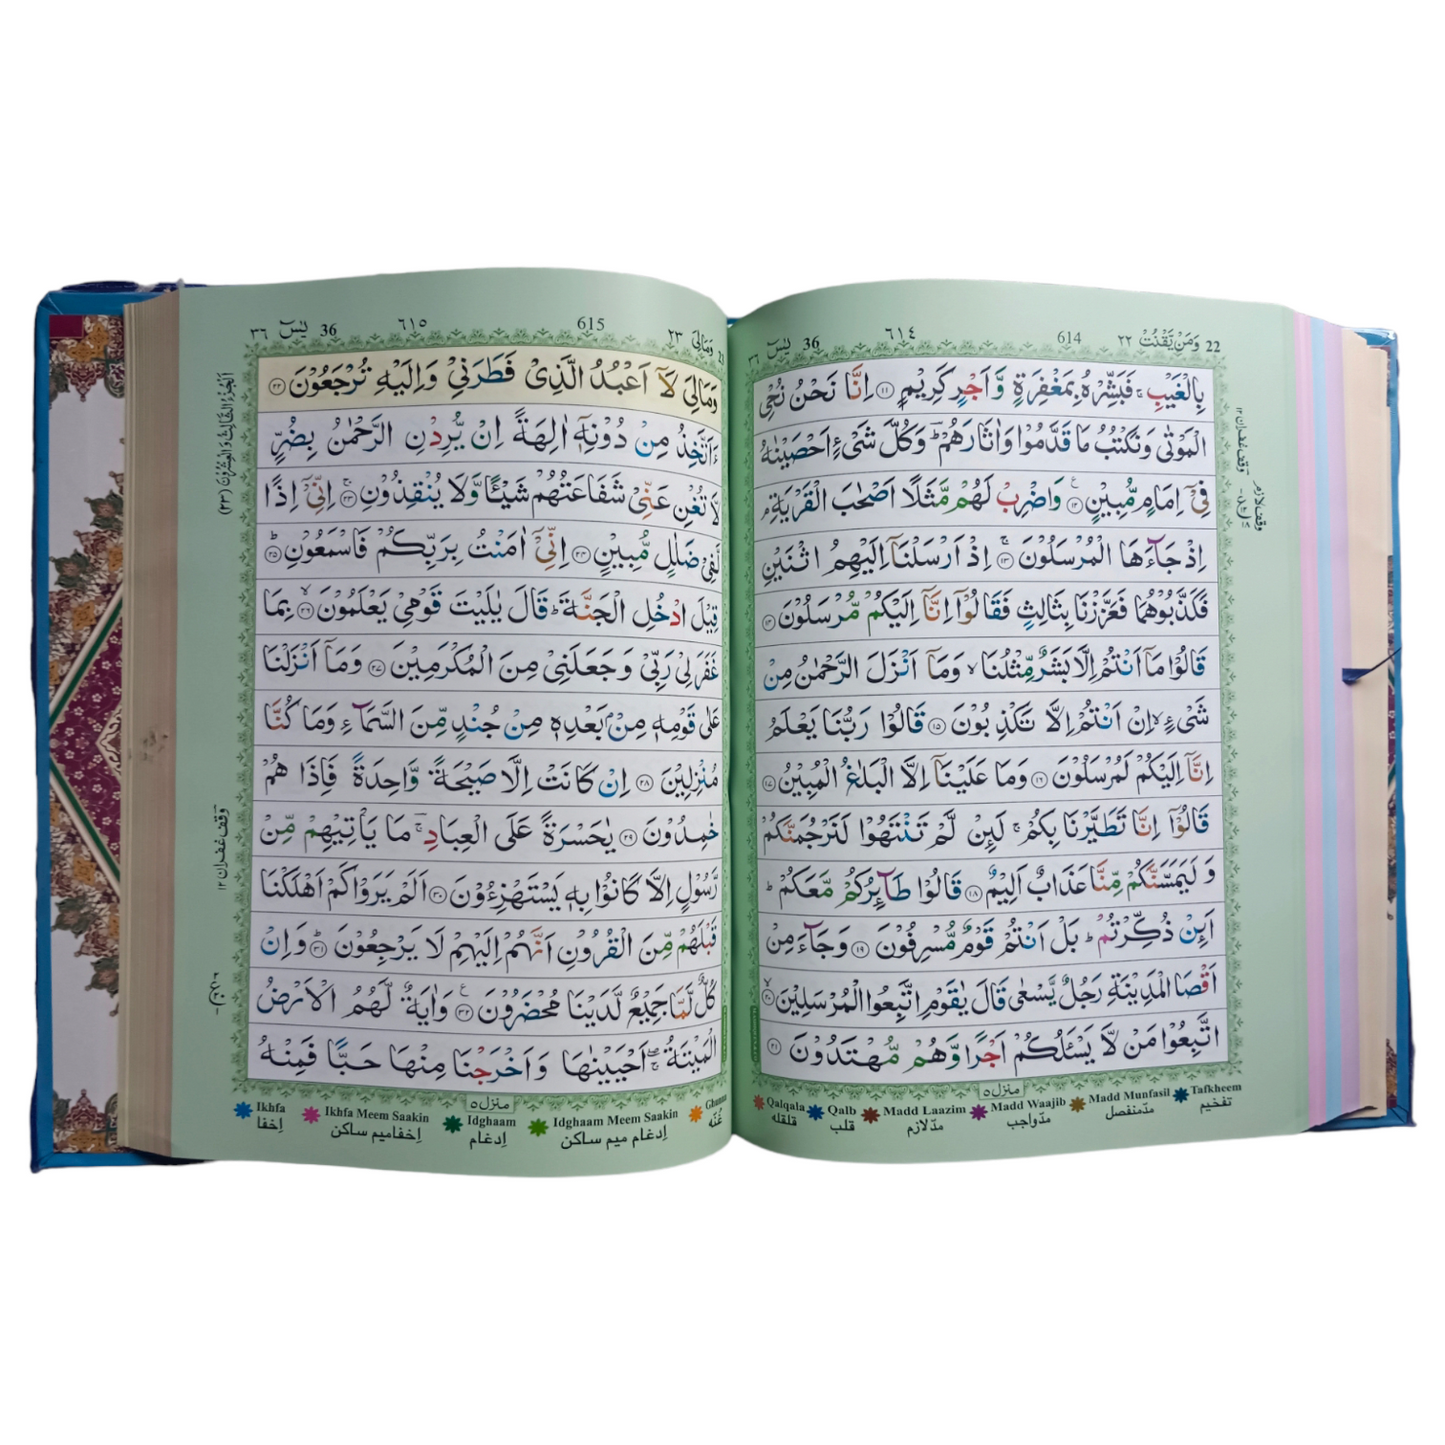 22 وَمَنْ يَّقْنُتْ ٢٢ 614 ٦١٤ 36 يٰسٓ ٣٦
بِالْغَيْبِ ۚ فَبَشِّرْهُ بِمَغْفِرَةٍ وَّاَجْرٍ كَرِيْمٍ ﴿١١﴾ اِنَّا نَحْنُ نُحْيِ
الْمَوْتٰى وَنَكْتُبُ مَا قَدَّمُوْا وَاٰثَارَهُمْ ؕ وَكُلَّ شَیْءٍ اَحْصَيْنٰهُ
فِیْۤ اِمَامٍ مُّبِيْنٍ ﴿١٢﴾ وَاضْرِبْ لَهُمْ مَّثَلًا اَصْحٰبَ الْقَرْيَةِ ۘ
اِذْ جَآءَهَا الْمُرْسَلُوْنَ ﴿١٣﴾ اِذْ اَرْسَلْنَاۤ اِلَيْهِمُ اثْنَيْنِ
فَكَذَّبُوْهُمَا فَعَزَّزْنَا بِثَالِثٍ فَقَالُوْۤا اِنَّاۤ اِلَيْكُمْ مُّرْسَلُوْنَ ﴿١٤﴾
قَالُوْا مَاۤ اَنْتُمْ اِلَّا بَشَرٌ مِّثْلُنَا ۙ وَمَاۤ اَنْزَلَ الرَّحْمٰنُ مِنْ
شَیْءٍ ۙ اِنْ اَنْتُمْ اِلَّا تَكْذِبُوْنَ ﴿١٥﴾ قَالُوْا رَبُّنَا يَعْلَمُ
اِنَّاۤ اِلَيْكُمْ لَمُرْسَلُوْنَ ﴿١٦﴾ وَمَا عَلَيْنَاۤ اِلَّا الْبَلٰغُ الْمُبِيْنُ ﴿١٧﴾
قَالُوْۤا اِنَّا تَطَيَّرْنَا بِكُمْ ۚ لَئِنْ لَّمْ تَنْتَهُوْا لَنَرْجُمَنَّكُمْ
وَلَيَمَسَّنَّكُمْ مِّنَّا عَذَابٌ اَلِيْمٌ ﴿١٨﴾ قَالُوْا طَآئِرُكُمْ مَّعَكُمْ ؕ
اَئِنْ ذُكِّرْتُمْ ؕ بَلْ اَنْتُمْ قَوْمٌ مُّسْرِفُوْنَ ﴿١٩﴾ وَجَآءَ مِنْ
اَقْصَا الْمَدِيْنَةِ رَجُلٌ يَّسْعٰى قَالَ يٰقَوْمِ اتَّبِعُوا الْمُرْسَلِيْنَ ﴿٢٠﴾
اتَّبِعُوْا مَنْ لَّا يَسْـَٔلُكُمْ اَجْرًا وَّهُمْ مُّهْتَدُوْنَ ﴿٢١﴾
منزل ٥
Qalqala Qalb Madd Laazim Madd Waajib Madd Munfasil Tafkheem
قلقله قلب مدّ لازم مدّ واجب مدّ منفصل تفخيم
وقف غفران ١٢
وقف لازم
وَمَالِيَ ٢٣ 615 ٦١٥ 36 يٰسٓ ٣٦
وَمَالِيَ لَاۤ اَعْبُدُ الَّذِیْ فَطَرَنِیْ وَاِلَيْهِ تُرْجَعُوْنَ ﴿٢٢﴾
ءَاَتَّخِذُ مِنْ دُوْنِهٖۤ اٰلِهَةً اِنْ يُّرِدْنِ الرَّحْمٰنُ بِضُرٍّ
لَّا تُغْنِ عَنِّیْ شَفَاعَتُهُمْ شَيْـًٔا وَّلَا يُنْقِذُوْنِ ﴿٢٣﴾ اِنِّیْۤ اِذًا
لَّفِیْ ضَلٰلٍ مُّبِيْنٍ ﴿٢٤﴾ اِنِّیْۤ اٰمَنْتُ بِرَبِّكُمْ فَاسْمَعُوْنِ ﴿٢٥﴾
قِيْلَ ادْخُلِ الْجَنَّةَ ؕ قَالَ يٰلَيْتَ قَوْمِیْ يَعْلَمُوْنَ ﴿٢٦﴾ بِمَا
غَفَرَ لِیْ رَبِّیْ وَجَعَلَنِیْ مِنَ الْمُكْرَمِيْنَ ﴿٢٧﴾ وَمَاۤ اَنْزَلْنَا
عَلٰى قَوْمِهٖ مِنْۢ بَعْدِهٖ مِنْ جُنْدٍ مِّنَ السَّمَآءِ وَمَا كُنَّا
مُنْزِلِيْنَ ﴿٢٨﴾ اِنْ كَانَتْ اِلَّا صَيْحَةً وَّاحِدَةً فَاِذَا هُمْ
خٰمِدُوْنَ ﴿٢٩﴾ يٰحَسْرَةً عَلَى الْعِبَادِ ۚ مَا يَاْتِيْهِمْ مِّنْ
رَّسُوْلٍ اِلَّا كَانُوْا بِهٖ يَسْتَهْزِءُوْنَ ﴿٣٠﴾ اَلَمْ يَرَوْا كَمْ اَهْلَكْنَا
قَبْلَهُمْ مِّنَ الْقُرُوْنِ اَنَّهُمْ اِلَيْهِمْ لَا يَرْجِعُوْنَ ﴿٣١﴾ وَاِنْ
كُلٌّ لَّمَّا جَمِيْعٌ لَّدَيْنَا مُحْضَرُوْنَ ﴿٣٢﴾ وَاٰيَةٌ لَّهُمُ الْاَرْضُ
الْمَيْتَةُ ۖۚ اَحْيَيْنٰهَا وَاَخْرَجْنَا مِنْهَا حَبًّا فَمِنْهُ
منزل ٥
Ikhfa Ikhfa Meem Saakin Idghaam Idghaam Meem Saakin Ghunna
اِخفا اِخفا میم ساکن اِدغام اِدغام میم ساکن غُنّه
اَلْجُزْءُ الثَّالِثُ وَالْعِشْرُوْنَ (٢٣)
وقف غفران ١٢